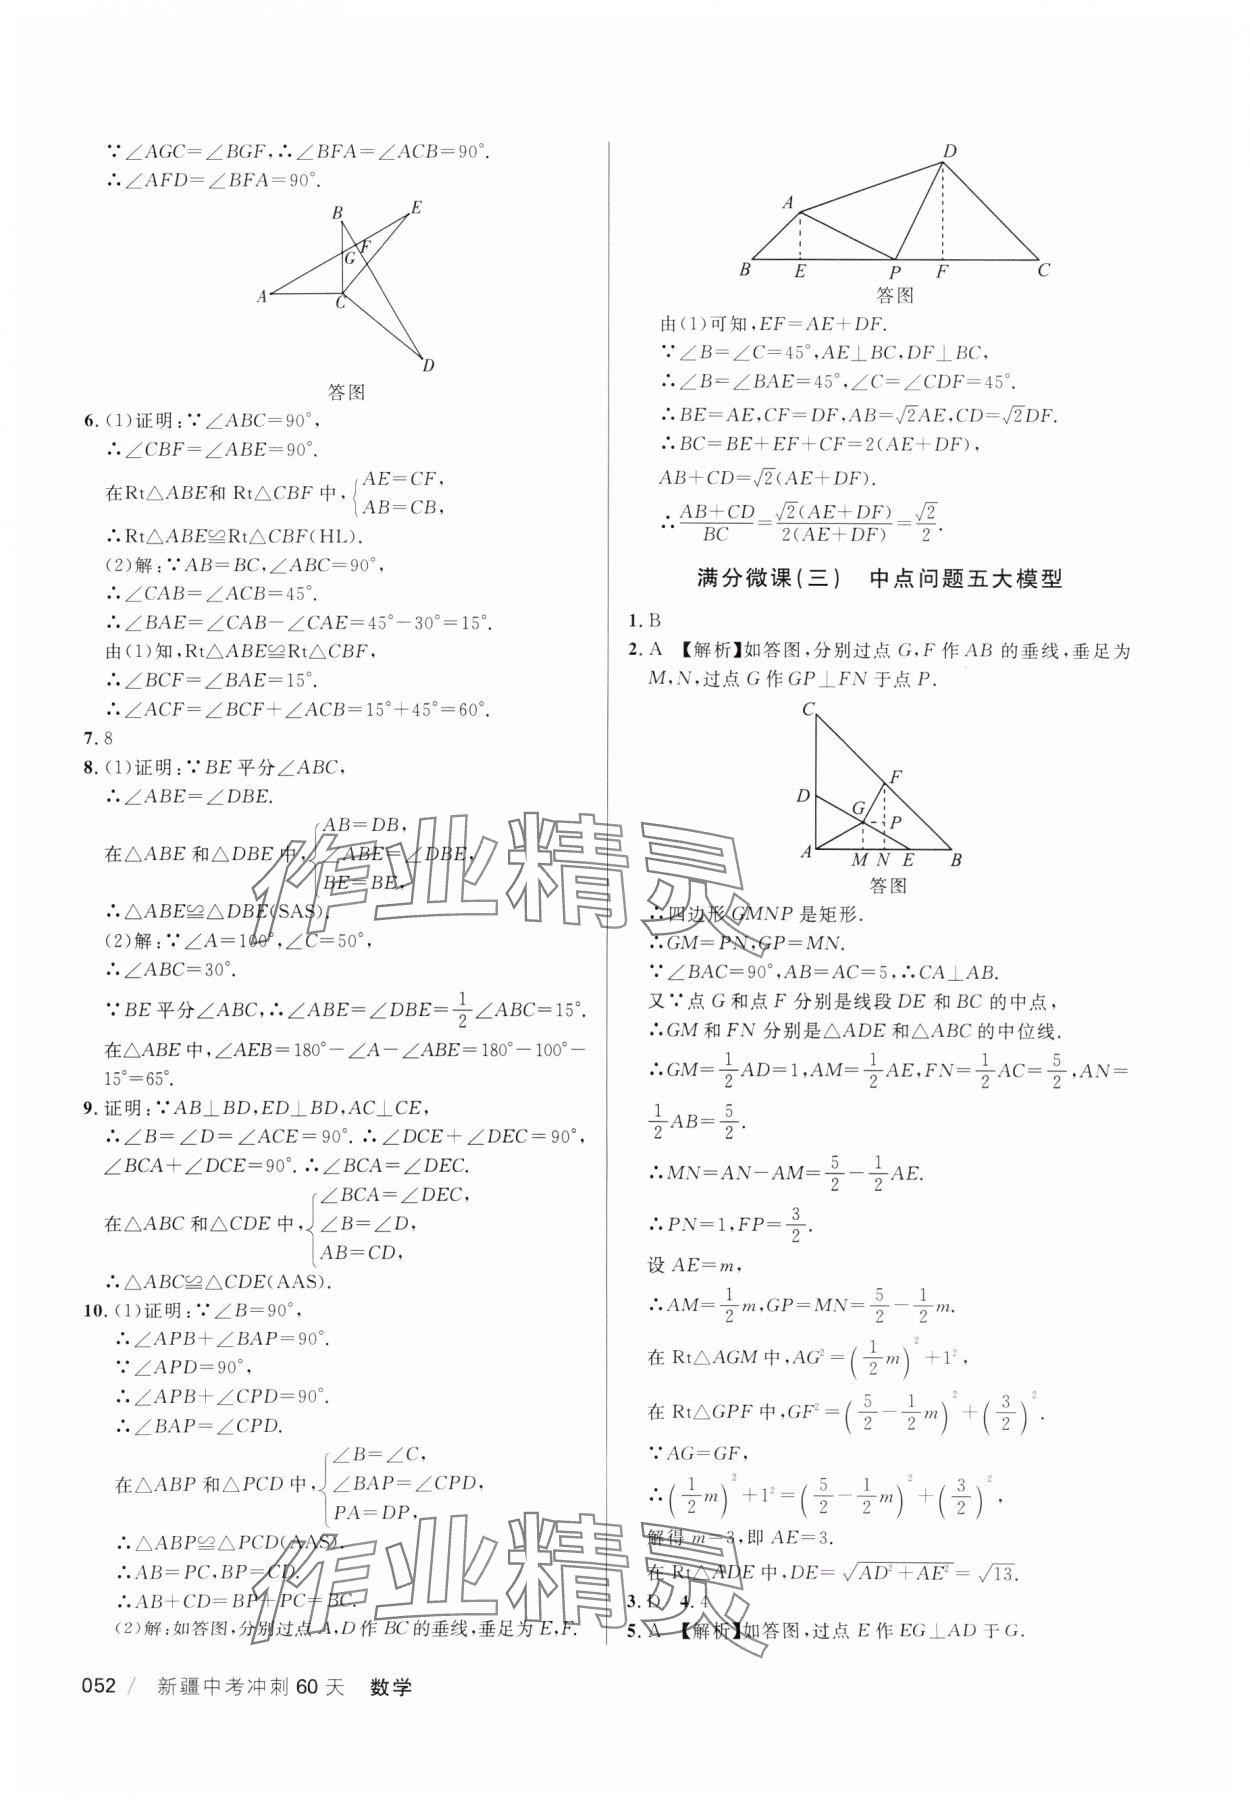 ∵∠AGC=∠BGF,∴∠BFA=∠ACB=90°.
∴∠AFD=∠BFA=90°.
B
E
F
G
A
C
D
答图
6.(1)证明:∵∠ABC=90°,
∴∠CBF=∠ABE=90°.
在Rt△ABE和 Rt△CBF 中,{AE=CF,
AB=CB,
∴Rt△ABE≌Rt△CBF(HL).
(2)解:∵AB=BC,∠ABC=90°,
∴∠CAB=∠ACB=45°.
∴∠BAE=∠CAB-∠CAE=45°-30°=15°.
由(1)知,Rt△ABE≌Rt△CBF,
∴∠BCF=∠BAE=15°.
∴∠ACF=∠BCF+∠ACB=15°+45°=60°.
7.8
8.(1)证明:∵BE 平分∠ABC,
∴∠ABE=∠DBE.
在△ABE 和△DBE 中,{AB=DB,
∠ABE=∠DBE,
BE=BE,
∴△ABE≌△DBE(SAS).
(2)解:∵∠A=100°,∠C=50°,
∴∠ABC=30°.
∵BE 平分∠ABC,∴∠ABE=∠DBE=1/2∠ABC=15°.
在△ABE 中,∠AEB=180°-∠A-∠ABE=180°-100°-
15°=65°.
9.证明:∵AB⊥BD,ED⊥BD,AC⊥CE,
∴∠B=∠D=∠ACE=90°.∴∠DCE+∠DEC=90°,
∠BCA+∠DCE=90°.∴∠BCA=∠DEC.
在△ABC 和△CDE 中,{∠BCA=∠DEC,
∠B=∠D,
AB=CD,
∴△ABC≌△CDE(AAS).
10.(1)证明:∵∠B=90°,
∴∠APB+∠BAP=90°.
∵∠APD=90°,
∴∠APB+∠CPD=90°.
∴∠BAP=∠CPD.
在△ABP 和△PCD 中,{∠B=∠C,
∠BAP=∠CPD,
PA=DP,
∴△ABP≌△PCD(AAS).
∴AB=PC,BP=CD.
∴AB+CD=BP+PC=BC.
(2)解:如答图,分别过点A,D作BC的垂线,垂足为E,F.
052 / 新疆中考冲刺 60 天 数学
D
A
B
E
P
F
C
答图
由(1)可知,EF=AE+DF.
∵∠B=∠C=45°,AE⊥BC,DF⊥BC,
∴∠B=∠BAE=45°,∠C=∠CDF=45°.
∴BE=AE,CF=DF,AB=√2AE,CD=√2DF.
∴BC=BE+EF+CF=2(AE+DF),
AB+CD=√2(AE+DF).
∴(AB+CD)/BC=√2(AE+DF)/2(AE+DF)=√2/2.
满分微课(三) 中点问题五大模型
1.B
2.A 【解析】如答图,分别过点G,F作AB的垂线,垂足为
M,N,过点G作GP⊥FN于点P.
C
F
D
G
P
A
M
N
E
B
答图
∴四边形GMNP是矩形.
∴GM=PN,GP=MN.
∵∠BAC=90°,AB=AC=5,∴CA⊥AB.
又∵点G和点F分别是线段DE和BC的中点,
∴GM和FN分别是△ADE和△ABC的中位线.
∴GM=1/2AD=1,AM=1/2AE,FN=1/2AC=5/2,AN=
1/2AB=5/2.
∴MN=AN-AM=5/2-1/2AE.
∴PN=1,FP=3/2.
设AE=m,
∴AM=1/2m,GP=MN=5/2-1/2m.
在 Rt△AGM 中,AG²=(1/2m)²+1²,
在 Rt△GPF 中,GF²=(5/2-1/2m)²+(3/2)².
∵AG=GF,
∴(1/2m)²+1²=(5/2-1/2m)²+(3/2)²,
解得m=3,即AE=3.
在 Rt△ADE 中,DE=√(AD²+AE²)=√13.
3.D 4.4
5.A 【解析】如答图,过点E作EG⊥AD于G.
作业精灵
作业精灵